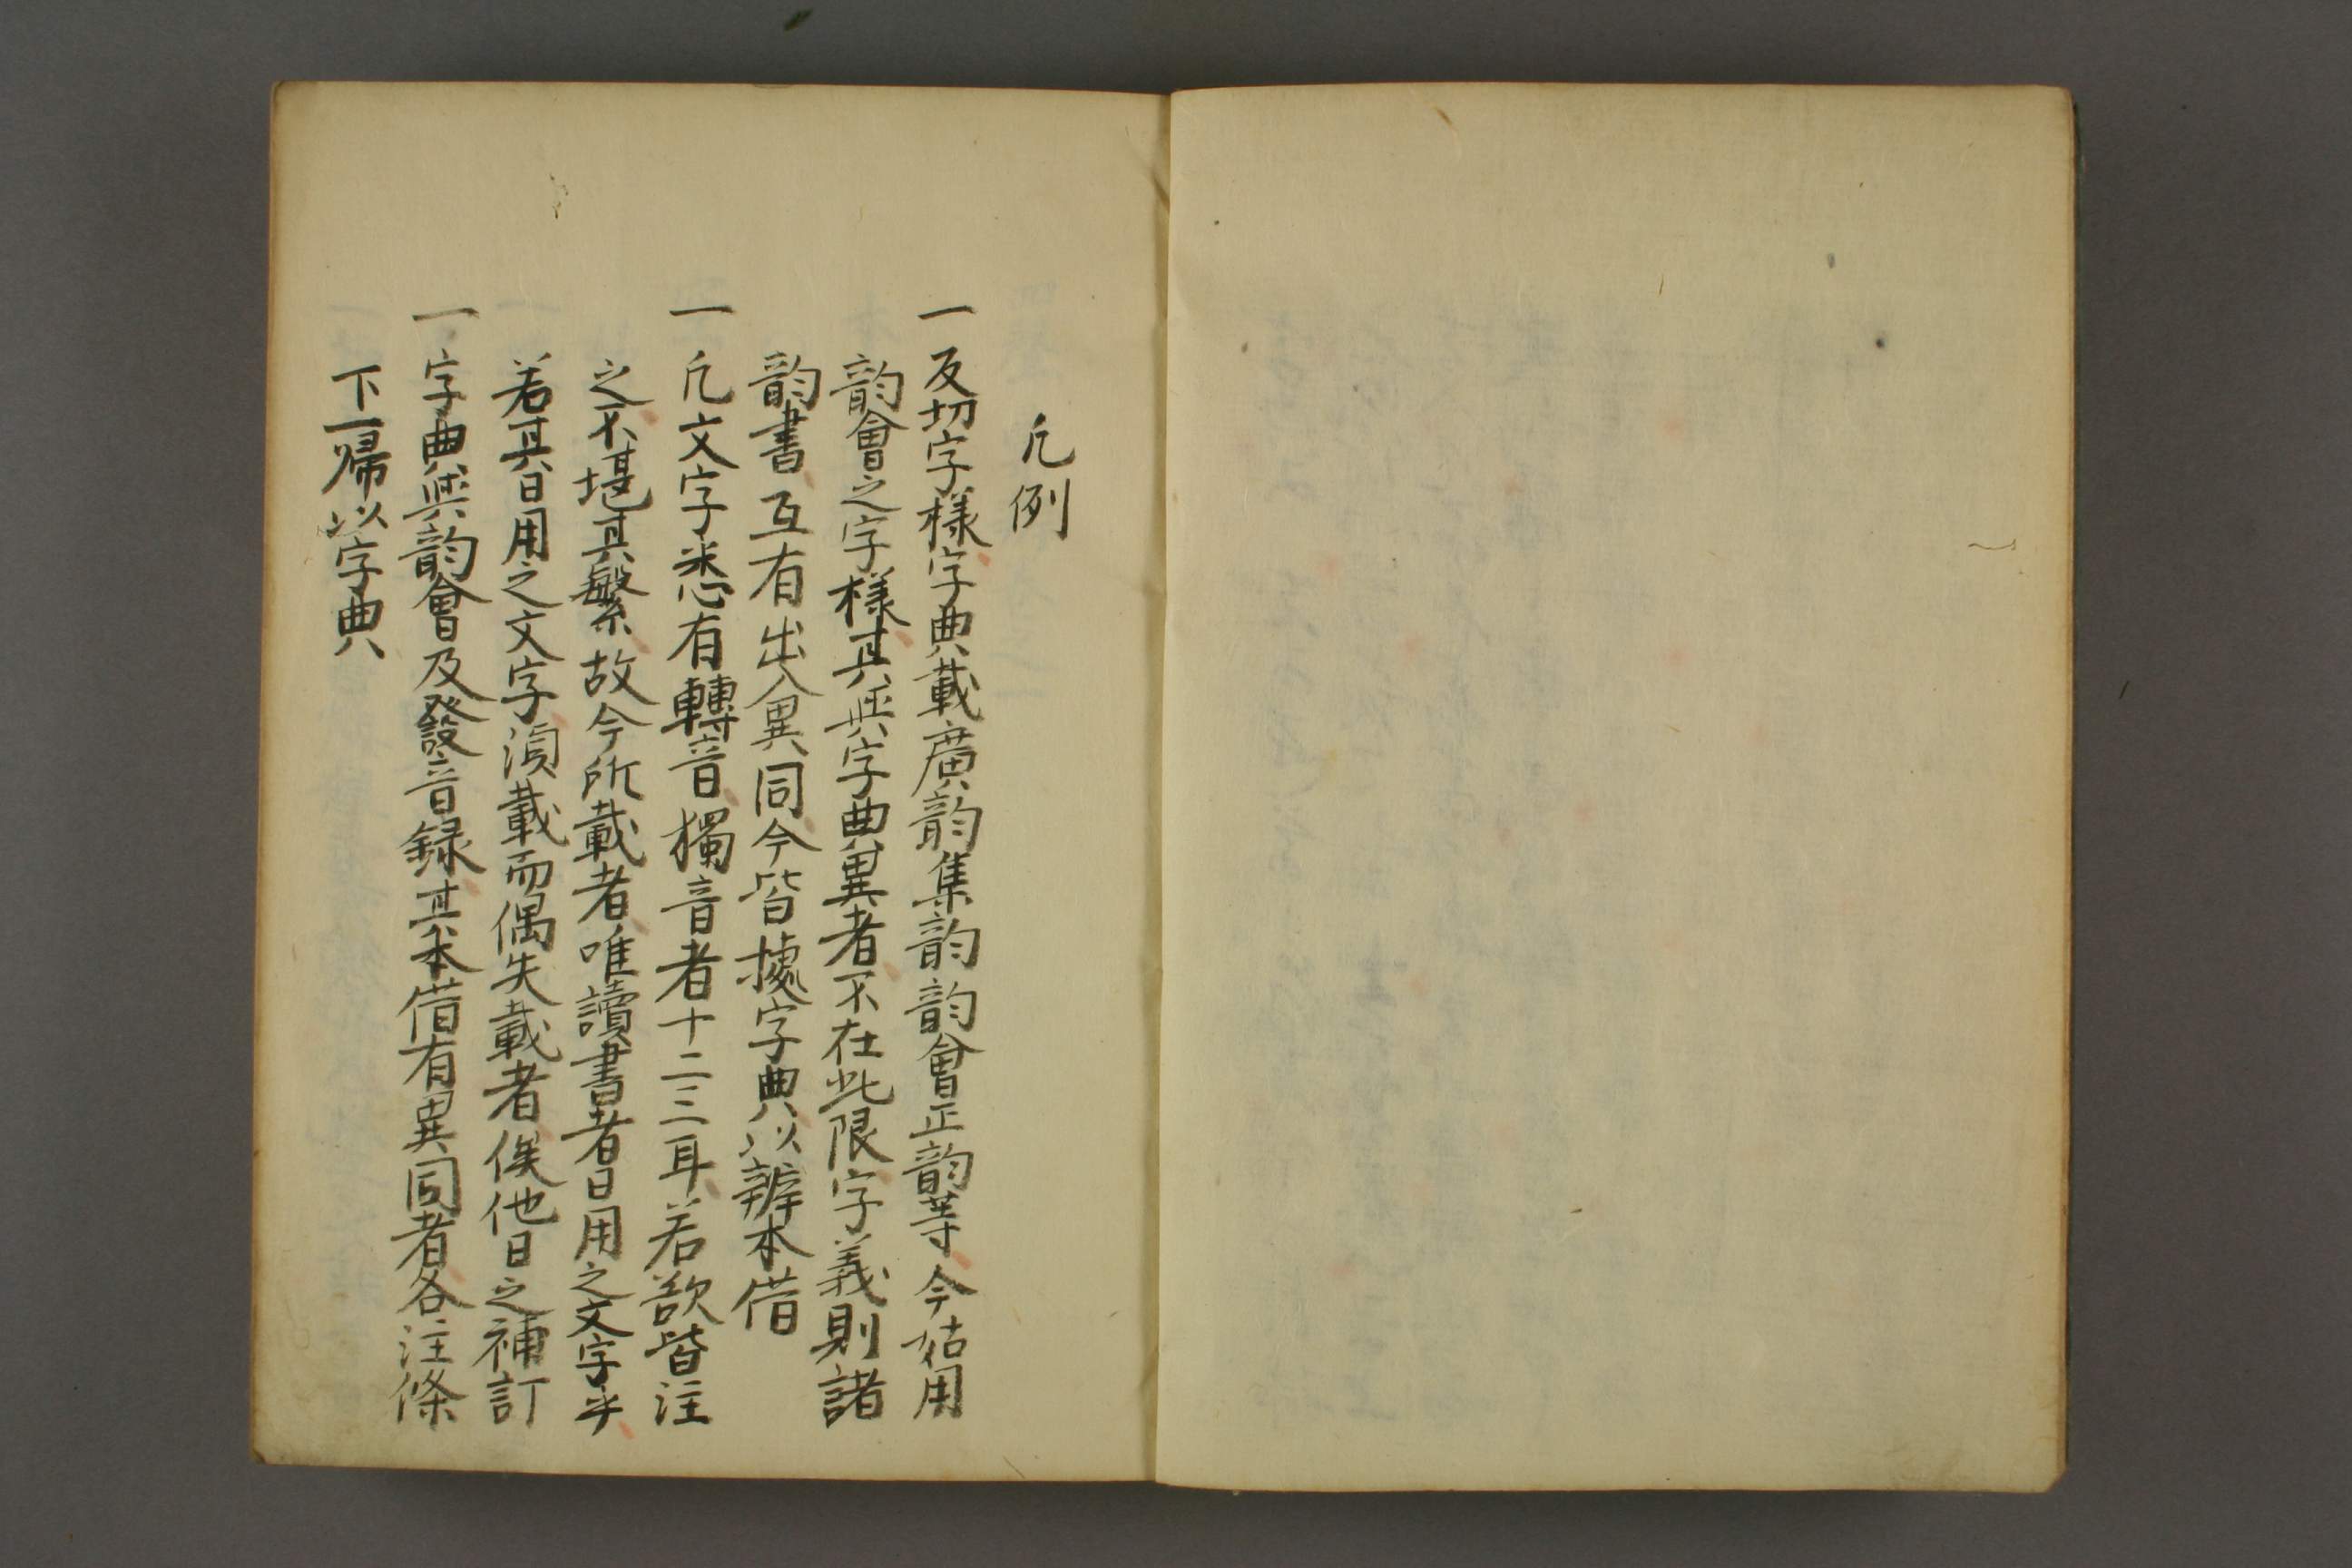 凡例
一反切字樣字典載廣韵集韵韵會正韵等今姑用
韵會之字樣其與字典異者不在此限字義則諸
韵書互有出入異同今皆據字典以辨本借
一凡文字悉有轉音獨音者十二三耳若欲皆注
之不堪其繁故今所載者唯讀書者日用之文字乎
若其日用之文字須載而偶失載者俟他日之補訂
一字典與韵會及發音録其本借有異同者各注條
下一歸以字典